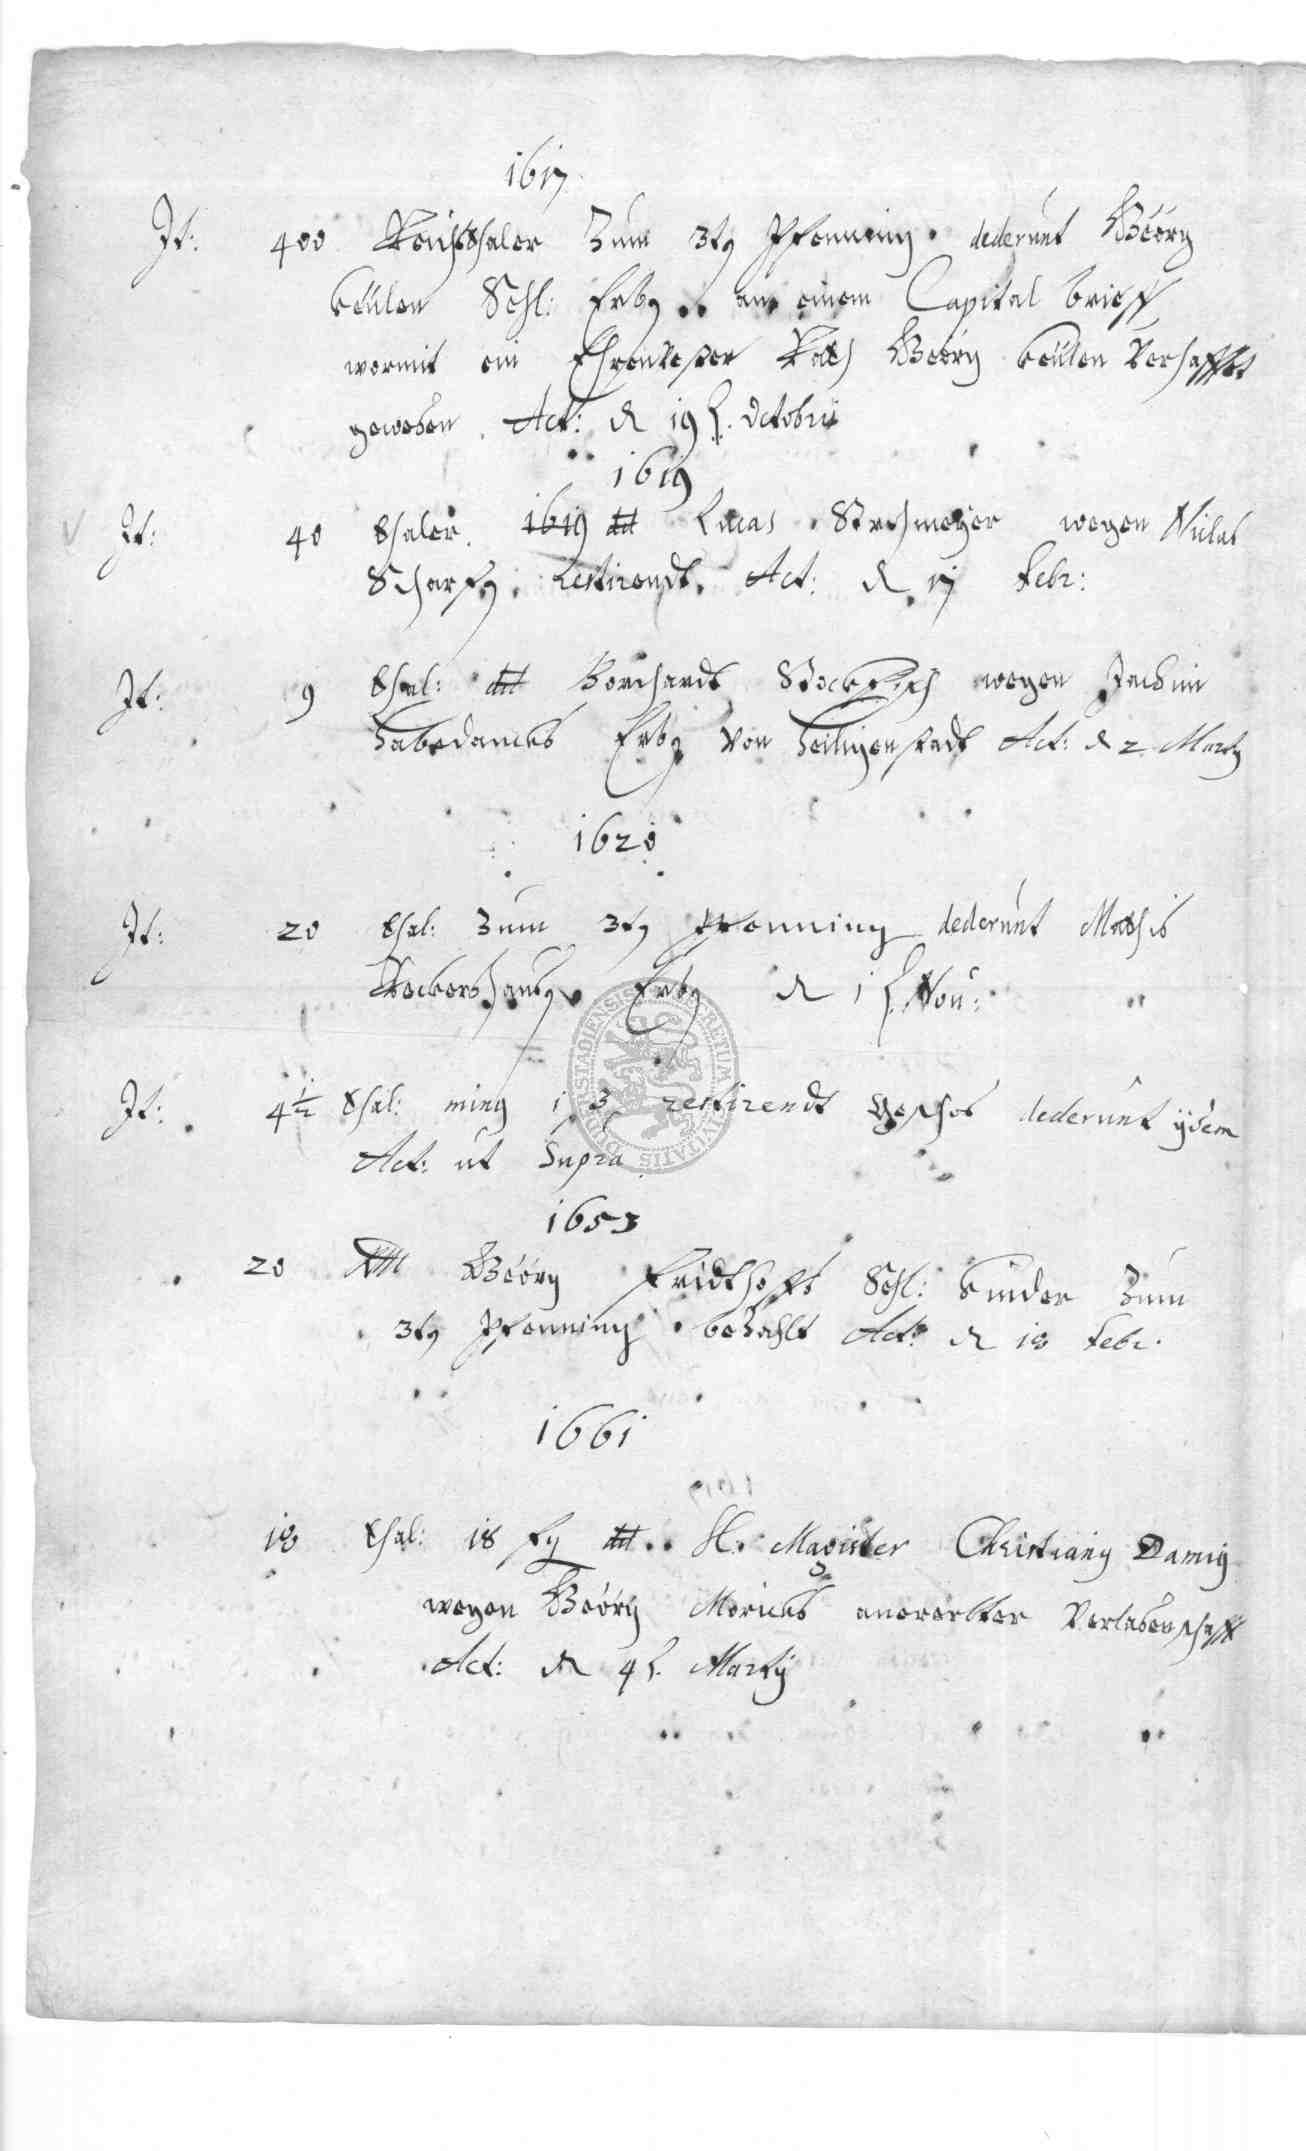 1617
It: 400 Reichsthaler Zum 3ten Pfenning dederunt Geörg
Keülen Sehl: Erben an einem Capital brieff
wormit ein Ehrenvester Rath Geörg Keülen Verhafftet
gewesen. Act: d 19 8. Octobris
1619
It: 40 thaler. 1619 ddt Lucas Strohmeyer wegen Niclas
Scharfen restirendt. Act: d 17 Febr:
It: 9 thal: ddt Borchardt Stockfisch wegen Jachim
Habedancks Erben Von Heiligenstadt Act: d 2 Marty
1620
It: 20 thal: Zum 3ten Pfenning dederunt Mathis
Reckershausen Erben d 1 9. Nou:
It: 4 1/2 thal: ming 1 restirendt geschos dederunt ijdem
Act: ut Supra
1653
20 Geörg Fridthoffs Sehl: Kinder Zum
3ten Pfenning bezahlt Act: d 18 Febr.
1661
18 thal: 18 ddt H. Magister Christiang Damig
wegen Geörg Moricks anererbter Verlasenschafft
Act: d 4 Martij
SECRETUM CIVITATIS DUDERSTADIENSIS